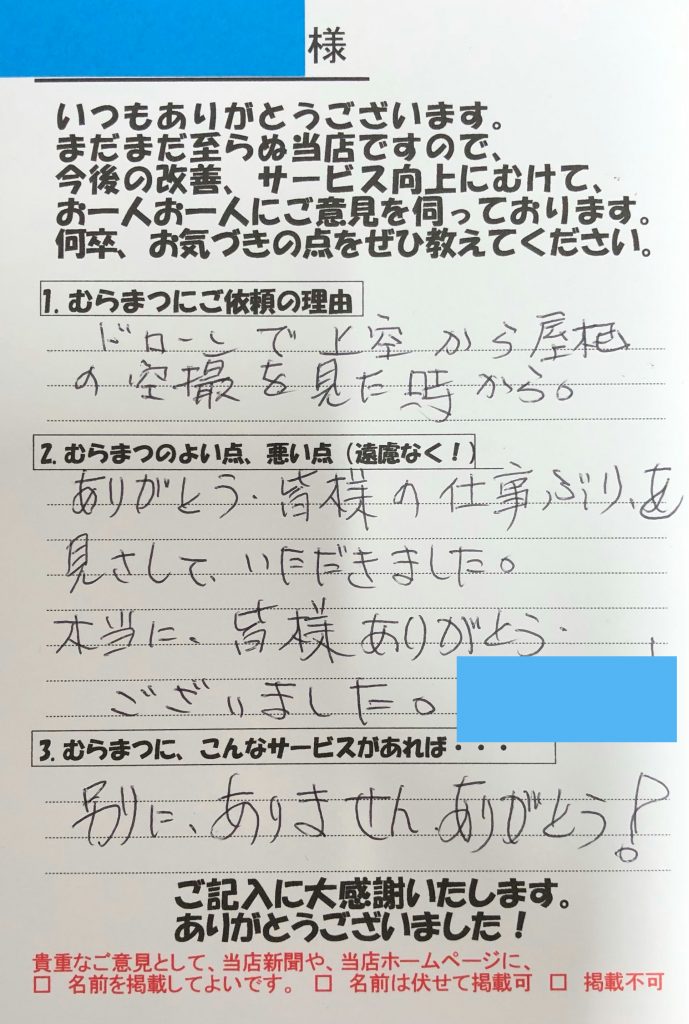 様
いつもありがとうございます。
まだまだ至らぬ当店ですので、
今後の改善、サービス向上にむけて、
お一人お一人にご意見を伺っております。
何卒、お気づきの点をぜひ教えてください。
1. むらまつにご依頼の理由
ドローンで上空から屋根
の空撮を見た時から。
2. むらまつのよい点、悪い点（遠慮なく！）
ありがとう.皆様の仕事ぶり、を
見さして、いただきました。
本当に、皆様ありがとう.
ございました。
3. むらまつに、こんなサービスがあれば・・・
別に、ありません.ありがとう!
ご記入に大感謝いたします。
ありがとうございました！
貴重なご意見として、当店新聞や、当店ホームページに、
□ 名前を掲載してよいです。 □ 名前は伏せて掲載可 □ 掲載不可